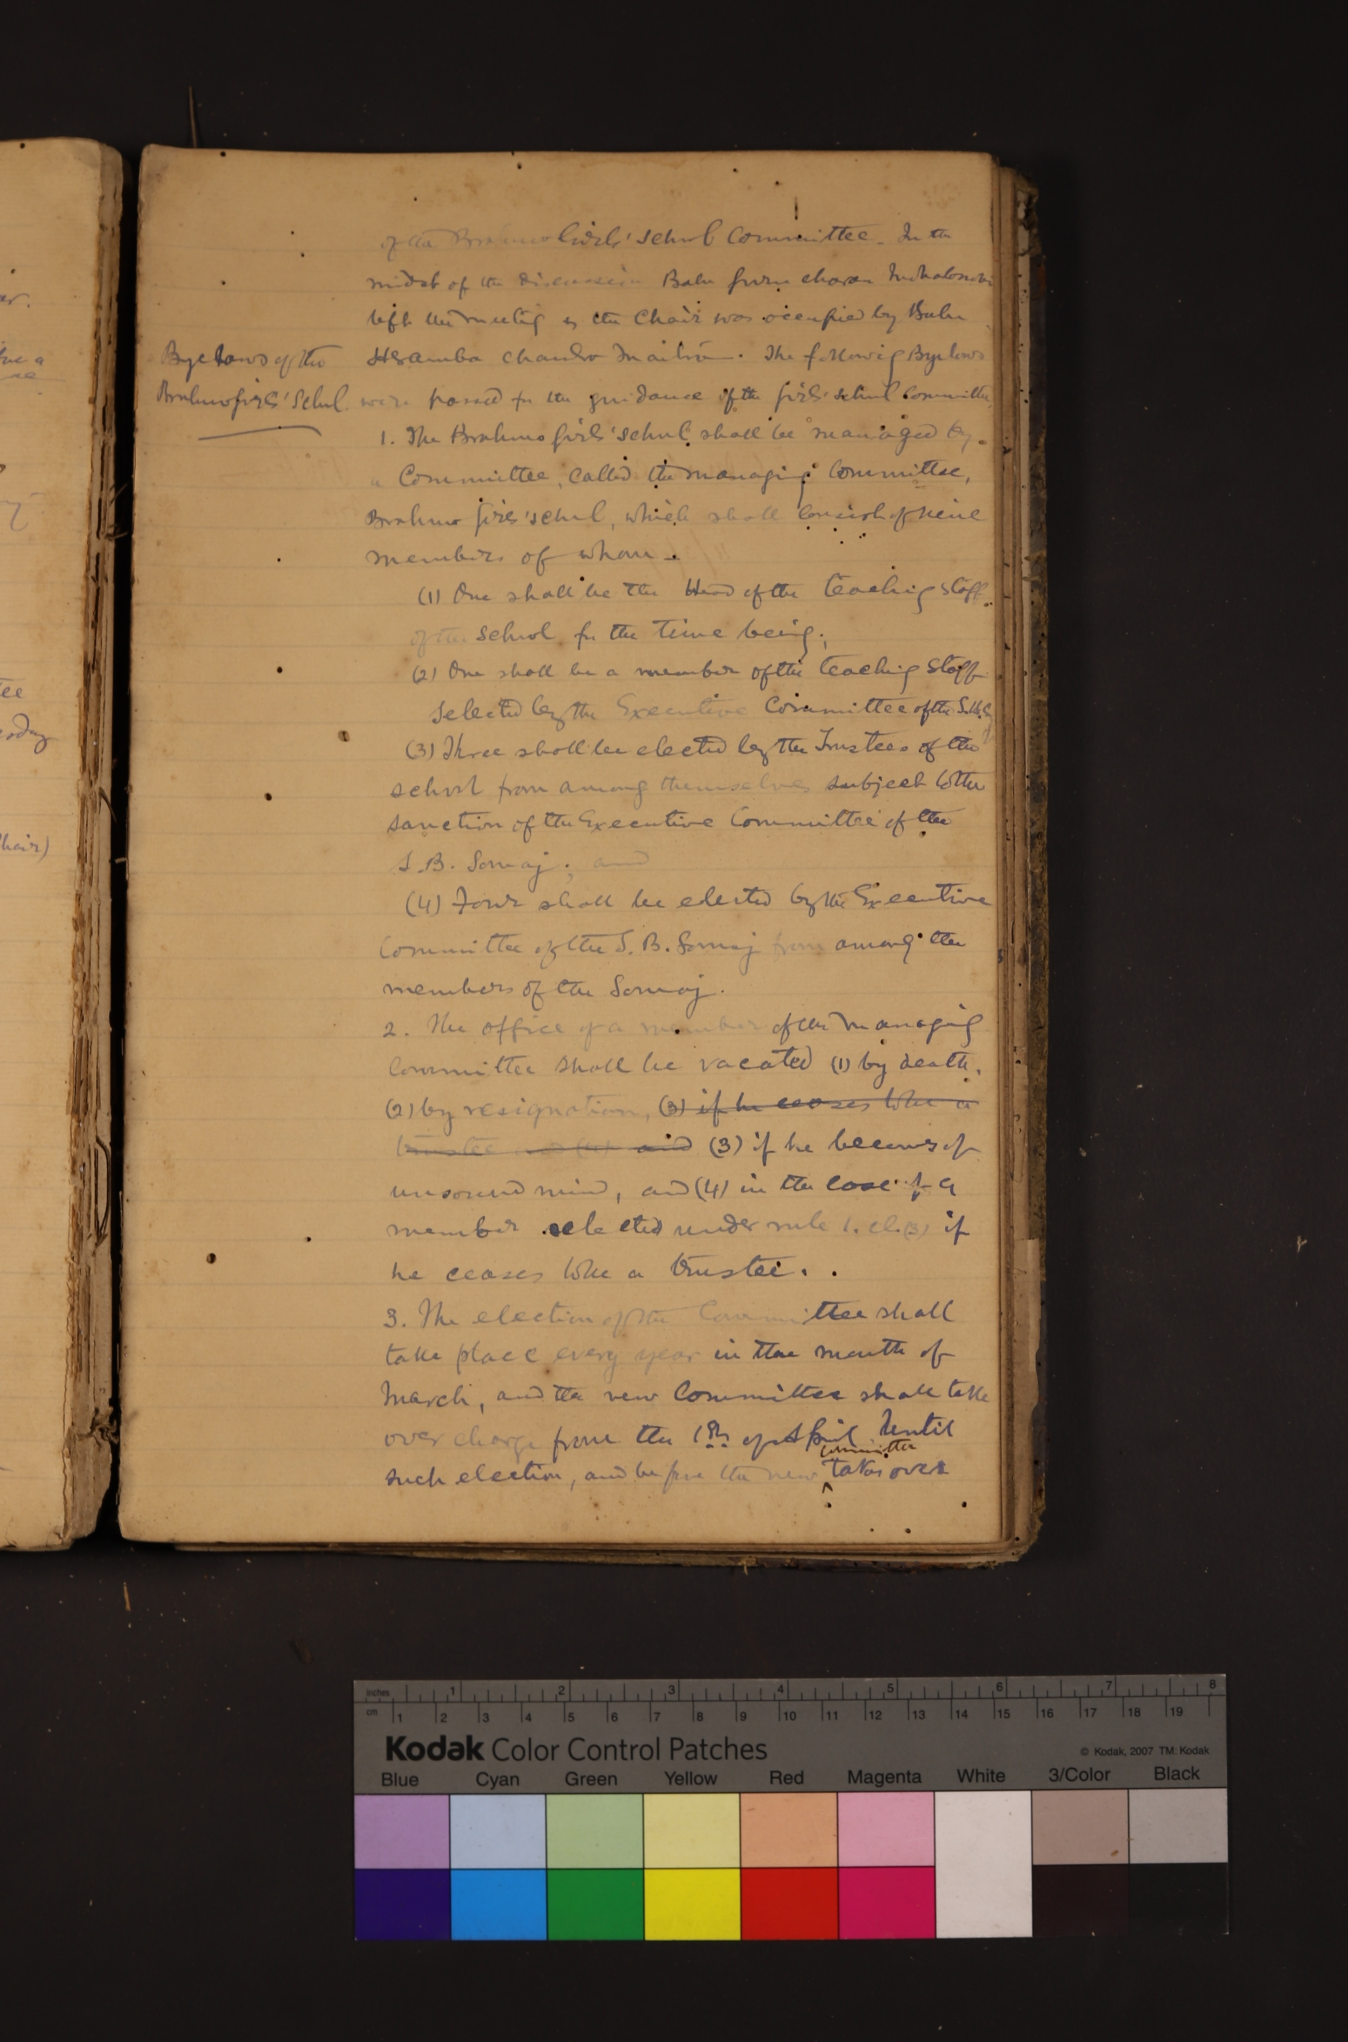 of the Brahmo Girls' School Committee. In the
midst of the discussion Babu Guru charan Mahalanobis
left the meeting & the Chair was occupied by Babu
Heramba Chandra Maitra. The following Byelaws
Bye laws of the
Brahmo girls' School.
were passed for the guidance of the girls' school Committee
1. The Brahmo Girls' School shall be managed by
a Committee, called the managing Committee,
Brahmo girls' school, which shall consist of nine
members of whom -
(1) One shall be the Head of the teaching staff
of the school for the time being;
(2) One shall be a member of the teaching staff
selected by the Executive Committee of the S.B.S.
(3) Three shall be elected by the Trustees of the
school from among themselves subject to the
sanction of the Executive Committee of the
S.B. Somaj; and
(4) Four shall be elected by the Executive
Committee of the S.B. Somaj from among the
members of the Somaj.
2. The office of a member of the managing
Committee shall be vacated (1) by death,
(2) by resignation, (3) if he ceases to be a
trustee and (3) if he becomes of
unsound mind, and (4) in the case of a
member selected under rule 1. cl. (3) if
he ceases to be a trustee.
3. The election of the Committee shall
take place every year in the month of
March, and the new Committee shall take
over charge from the 1st of April. Until
such election, and before the new committee takes over
ar.
tee
hair)
inches 1 2 3 4 5 6 7 8
cm 1 2 3 4 5 6 7 8 9 10 11 12 13 14 15 16 17 18 19
Kodak Color Control Patches
© Kodak, 2007 TM: Kodak
Blue Cyan Green Yellow Red Magenta White 3/Color Black